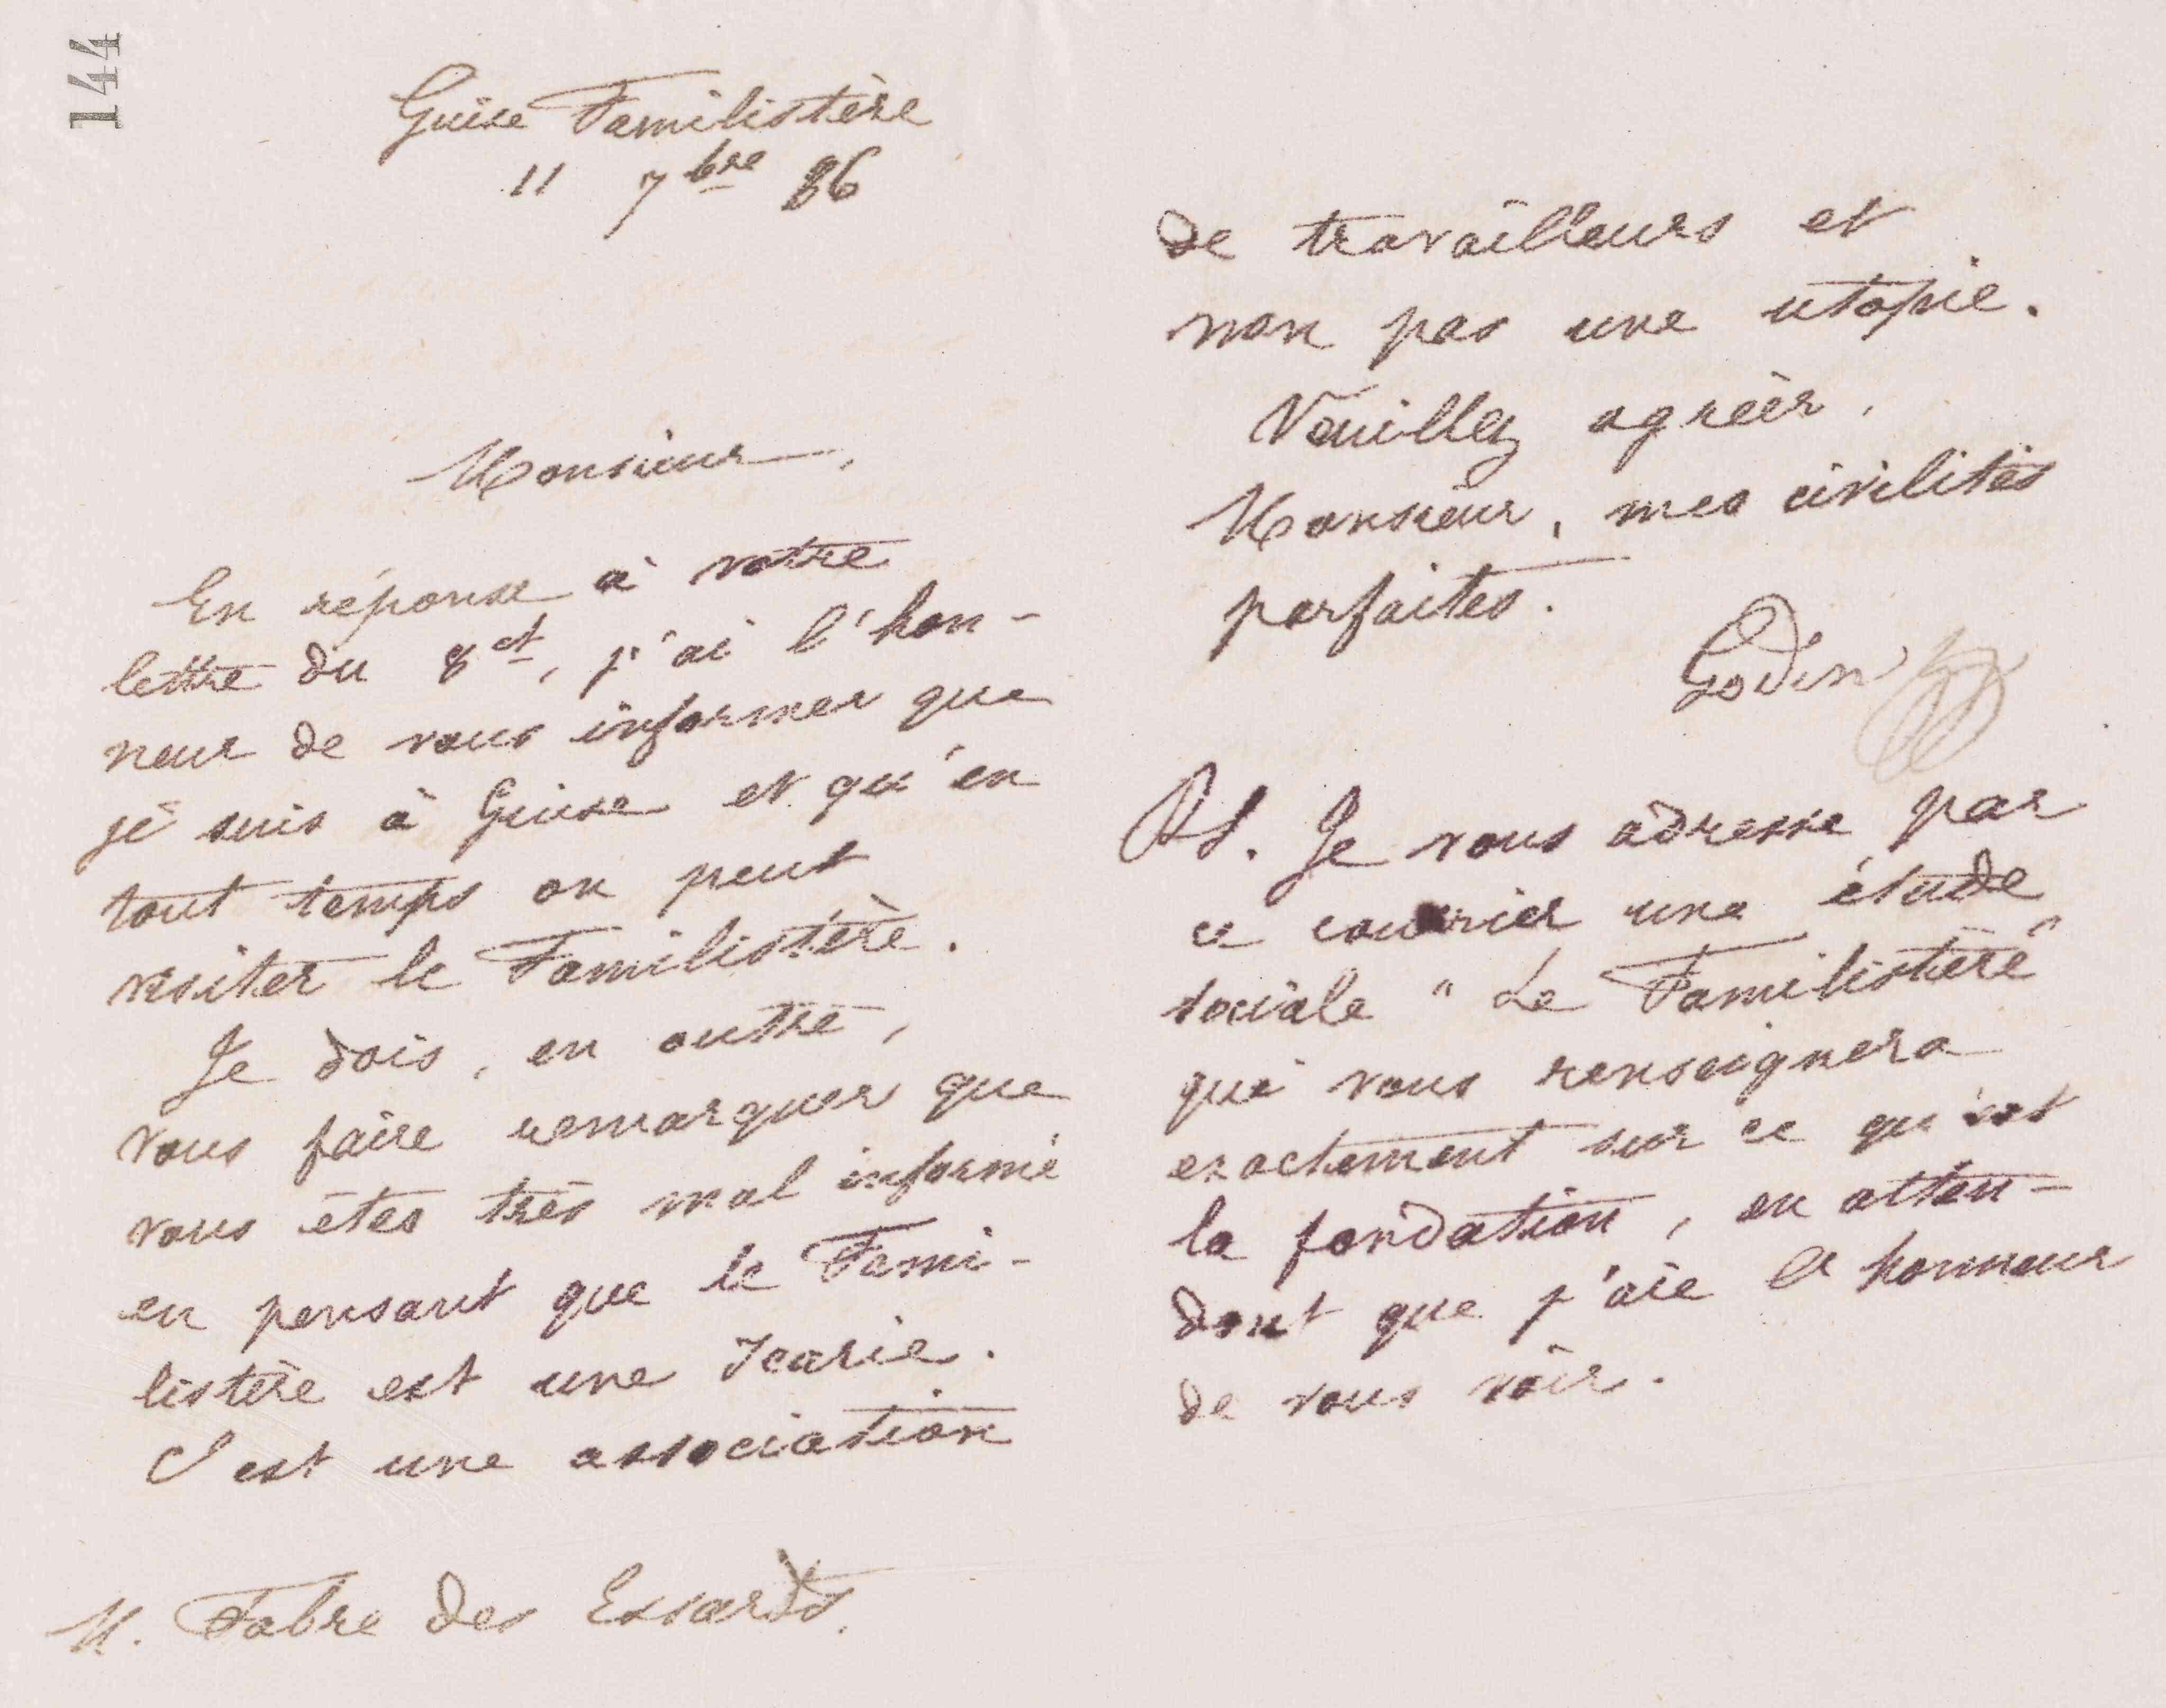 144
Guise Familistère
11 7bre 86
Monsieur,
En réponse à votre
lettre du 8 ct, j'ai l'hon-
neur de vous informer que
je suis à Guise et qu'en
tout temps on peut
visiter le Familistère.
Je dois, en outre,
vous faire remarquer que
vous êtes très mal informé
en pensant que le Fami-
listère est une Icarie.
C'est une association
M. Fabre des Essarts.
de travailleurs et
non pas une utopie.
Veuillez agréer,
Monsieur, mes civilités
parfaites.
Godin
PS. Je vous adresse par
ce courrier une étude
sociale "Le Familistère"
qui vous renseignera
exactement sur ce qu'est
la fondation, en atten-
dant que j'aie l'honneur
de vous voir.